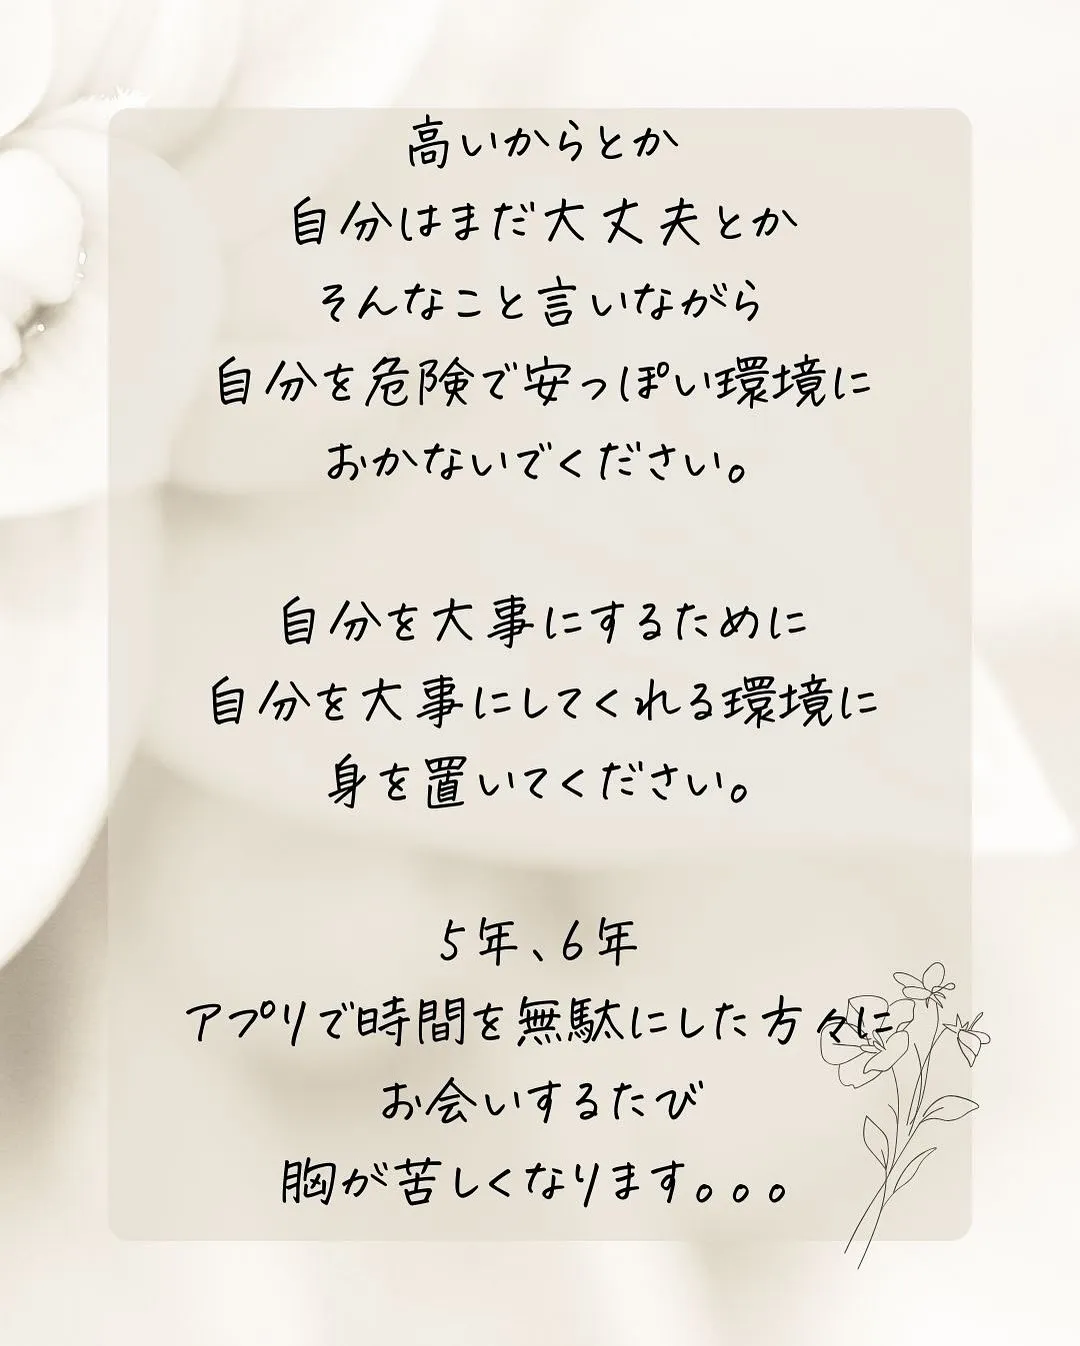 高いからとか
自分はまだ大丈夫とか
そんなこと言いながら
自分を危険で安っぽい環境に
おかないでください。
自分を大事にするために
自分を大事にしてくれる環境に
身を置いてください。
5年、6年
アプリで時間を無駄にした方々に
お会いするたび
胸が苦しくなります。。。